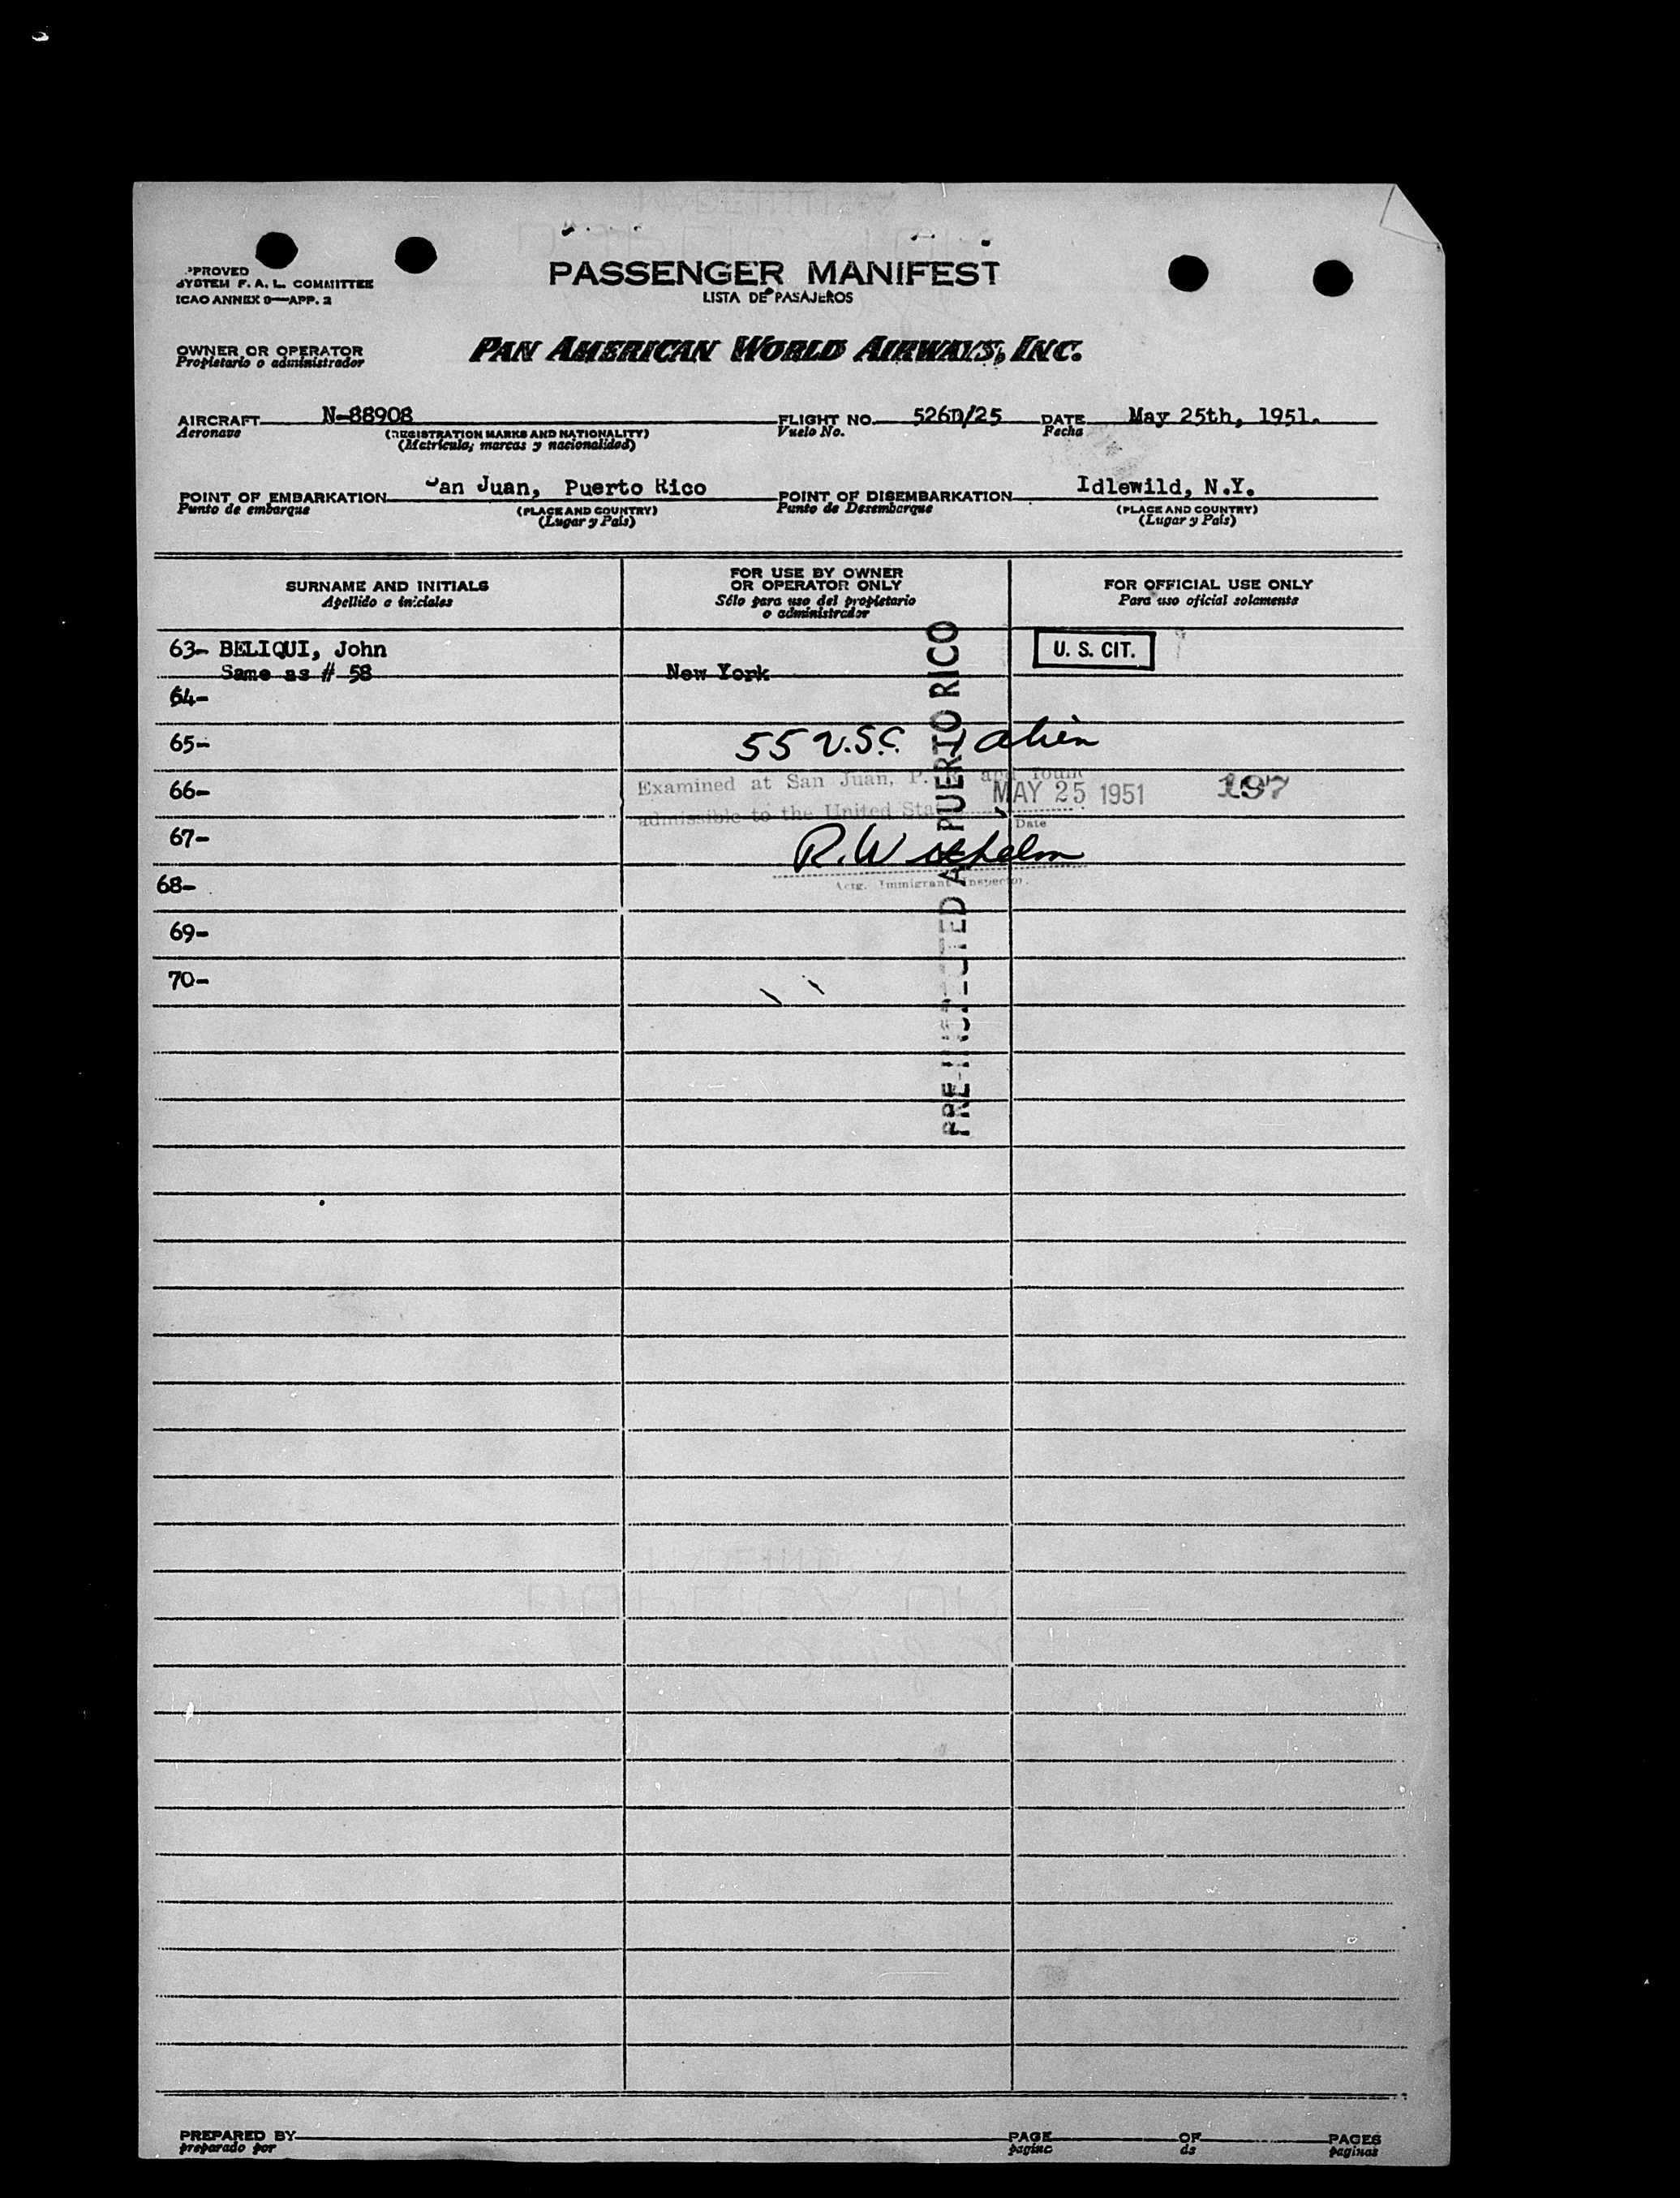 PROVED
SYSTEM F. A. L. COMMITTEE
ICAO ANNEX 9—APP. 2
PASSENGER MANIFEST
LISTA DE PASAJEROS
OWNER OR OPERATOR
Propietario o administrador
PAN AMERICAN WORLD AIRWAYS, INC.
AIRCRAFT N-88908 FLIGHT NO. 526D/25 DATE May 25th, 1951.
Aeronave (REGISTRATION MARKS AND NATIONALITY) Vuelo No. Fecha
(Matrícula, marcas y nacionalidad)
POINT OF EMBARKATION San Juan, Puerto Rico POINT OF DISEMBARKATION Idlewild, N.Y.
Punto de embarque (PLACE AND COUNTRY) Punto de Desembarque (PLACE AND COUNTRY)
(Lugar y País) (Lugar y País)
SURNAME AND INITIALS
Apellido e iniciales
FOR USE BY OWNER
OR OPERATOR ONLY
Sólo para uso del propietario
o administrador
FOR OFFICIAL USE ONLY
Para uso oficial solamente
63- BELIQUI, John U. S. CIT.
Same as # 58 New York
64-
65- 55 U.S.C. 1 alien
66- Examined at San Juan, P. R. and found
MAY 25 1951 197
admissible to the United States
Date
67- R. Wilhelm
Actg. Immigrant Inspector.
68-
69-
70-
PRE-INSPECTED AT PUERTO RICO
PREPARED BY PAGE OF PAGES
preparado por pagina de paginas